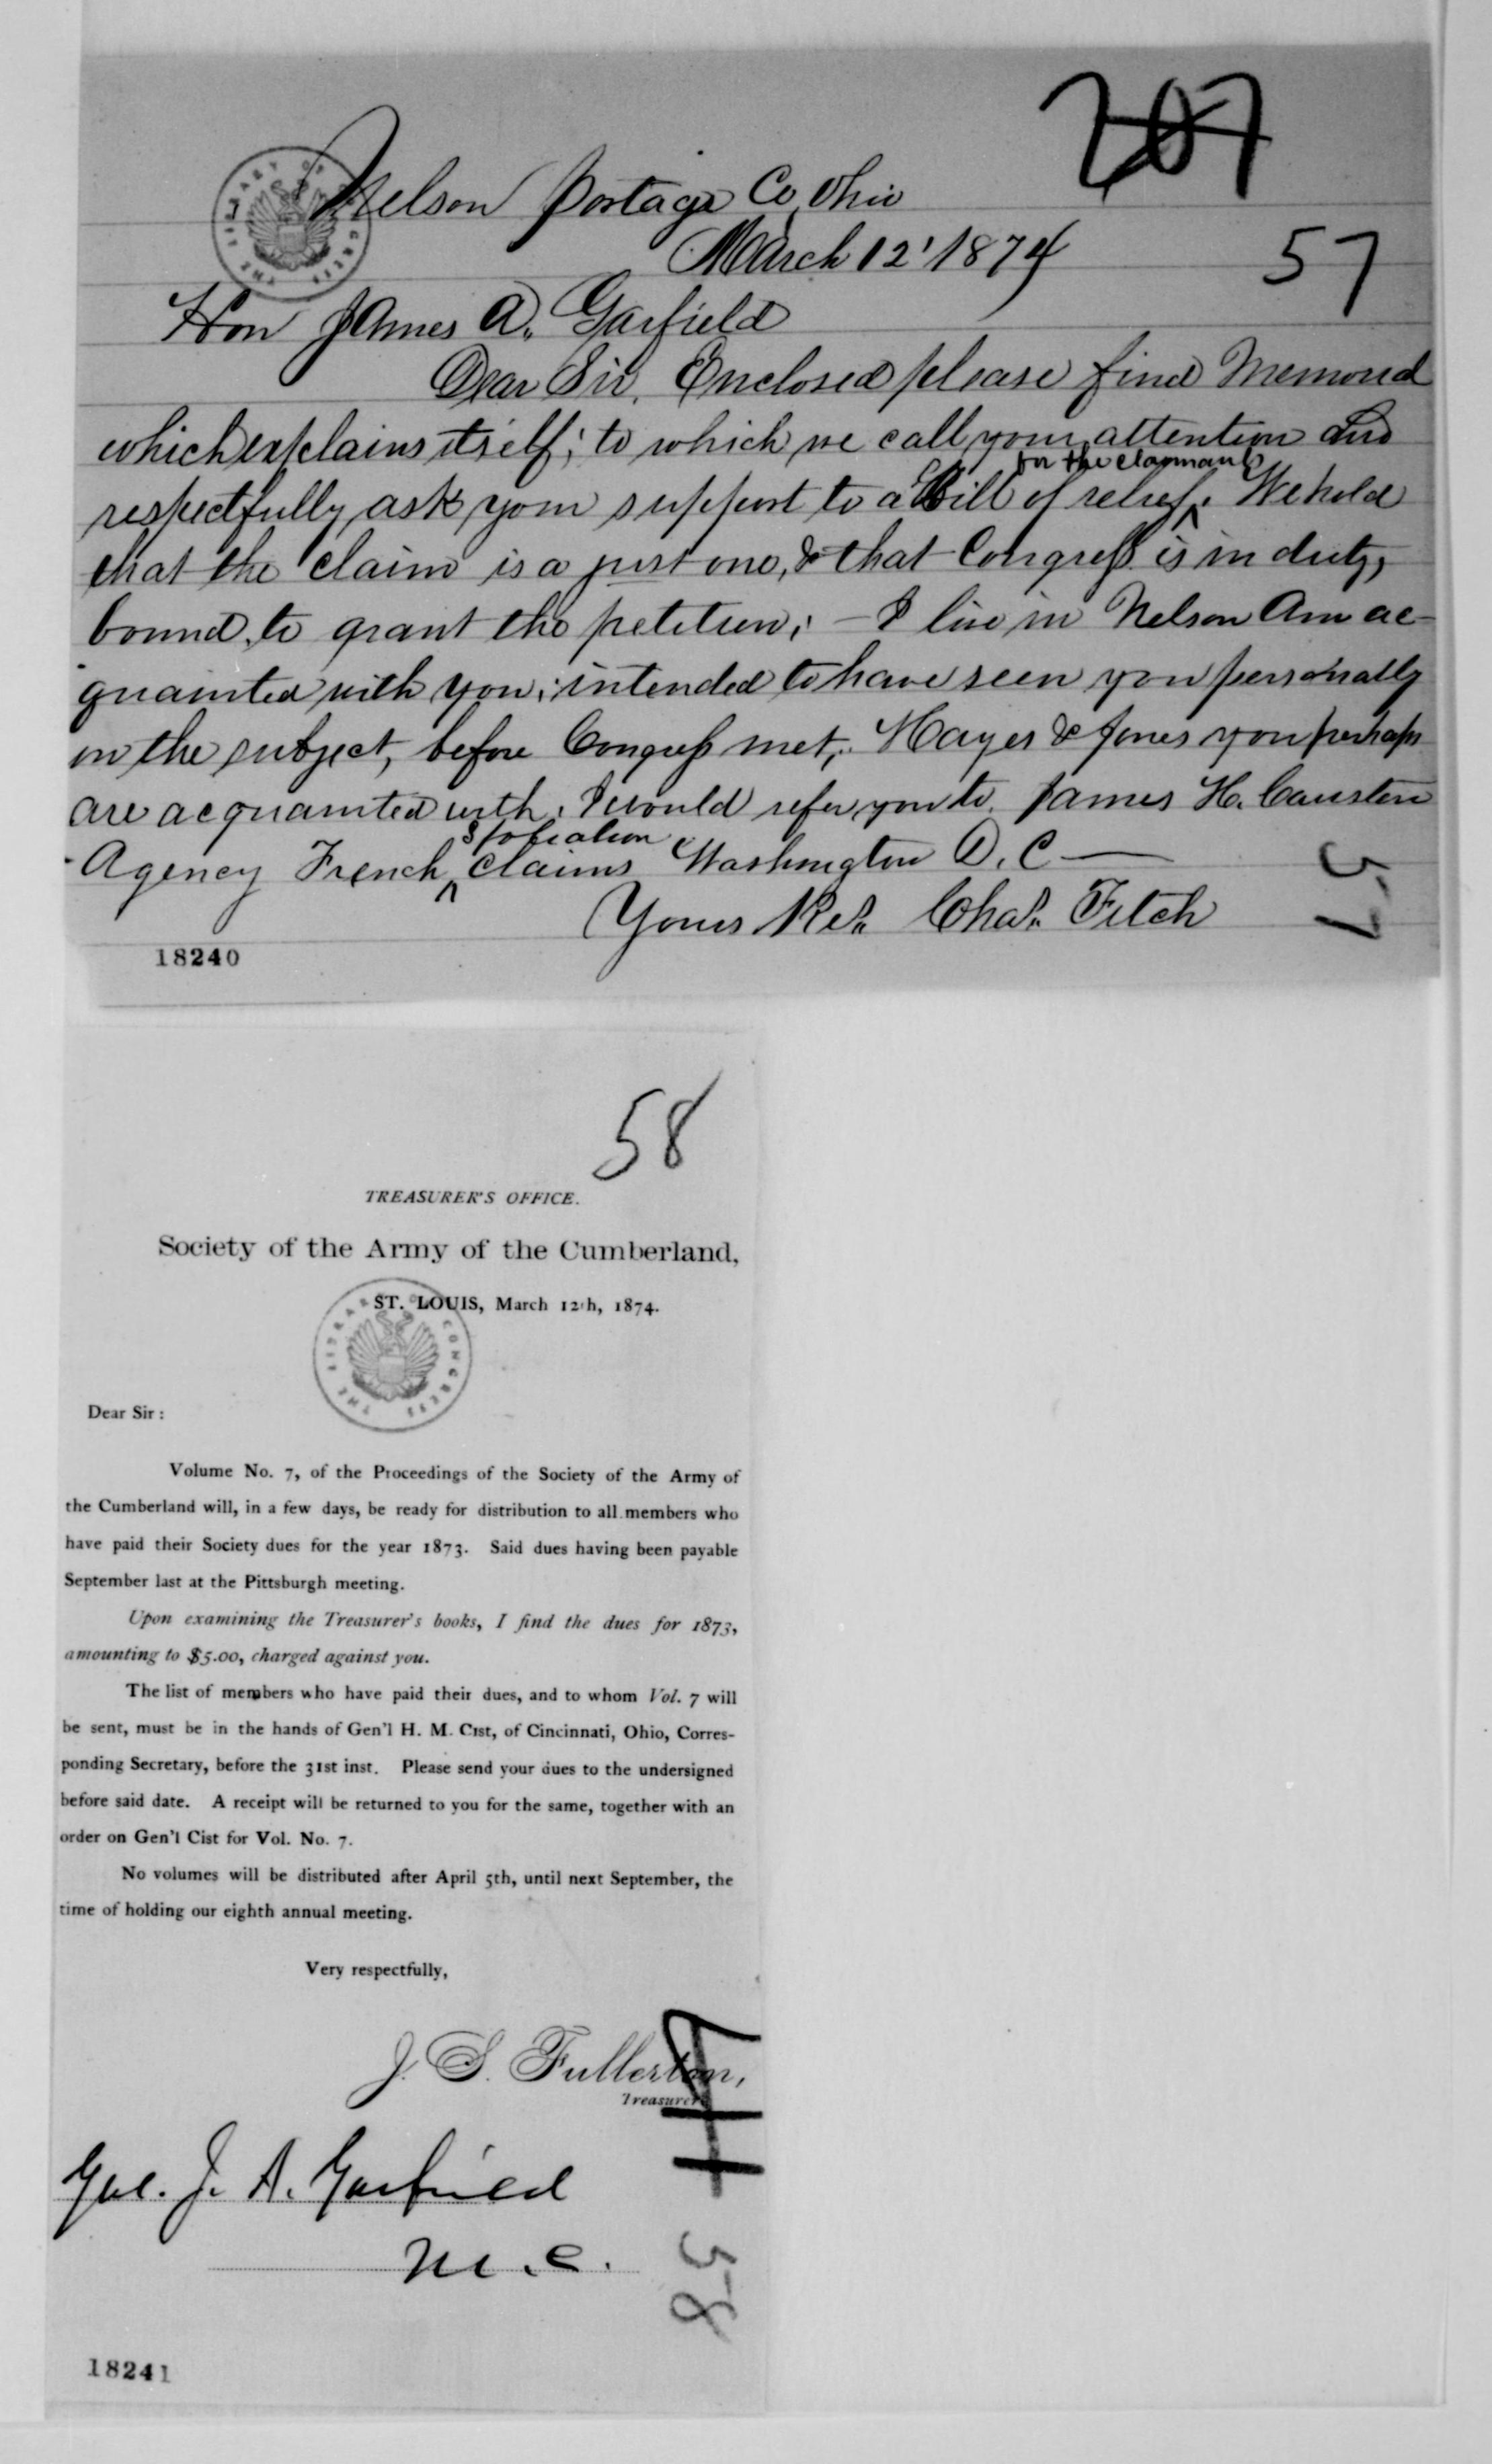 207
Nelson Portage Co, Ohio
March 12' 1874
57
Hon James A. Garfield
Dear Sir, Enclosed please find Memorial
which explains itself; to which we call your attention and
for the claimants
respectfully ask your support to a Bill of relief ^. We hold
that the claim is a just one, & that Congress is in duty,
bound, to grant the petition; — I live in Nelson Am ac-
quainted with you; intended to have seen you personally
on the subject, before Congress met; Hayes & Jones you perhaps
are acquainted with. I would refer you to James H. Causten
Spoliation
Agency French ^ Claims Washington D.C —
Yours Res. Chas. Fitch
57
18240
58
TREASURER'S OFFICE.
Society of the Army of the Cumberland,
ST. LOUIS, March 12th, 1874.
THE LIBRARY OF CONGRESS
Dear Sir:
Volume No. 7, of the Proceedings of the Society of the Army of
the Cumberland will, in a few days, be ready for distribution to all members who
have paid their Society dues for the year 1873. Said dues having been payable
September last at the Pittsburgh meeting.
Upon examining the Treasurer's books, I find the dues for 1873,
amounting to $5.00, charged against you.
The list of members who have paid their dues, and to whom Vol. 7 will
be sent, must be in the hands of Gen'l H. M. Cist, of Cincinnati, Ohio, Corres-
ponding Secretary, before the 31st inst. Please send your dues to the undersigned
before said date. A receipt will be returned to you for the same, together with an
order on Gen'l Cist for Vol. No. 7.
No volumes will be distributed after April 5th, until next September, the
time of holding our eighth annual meeting.
Very respectfully,
J. S. Fullerton,
Treasurer
Gel. J. A. Garfield
M.C.
58
18241